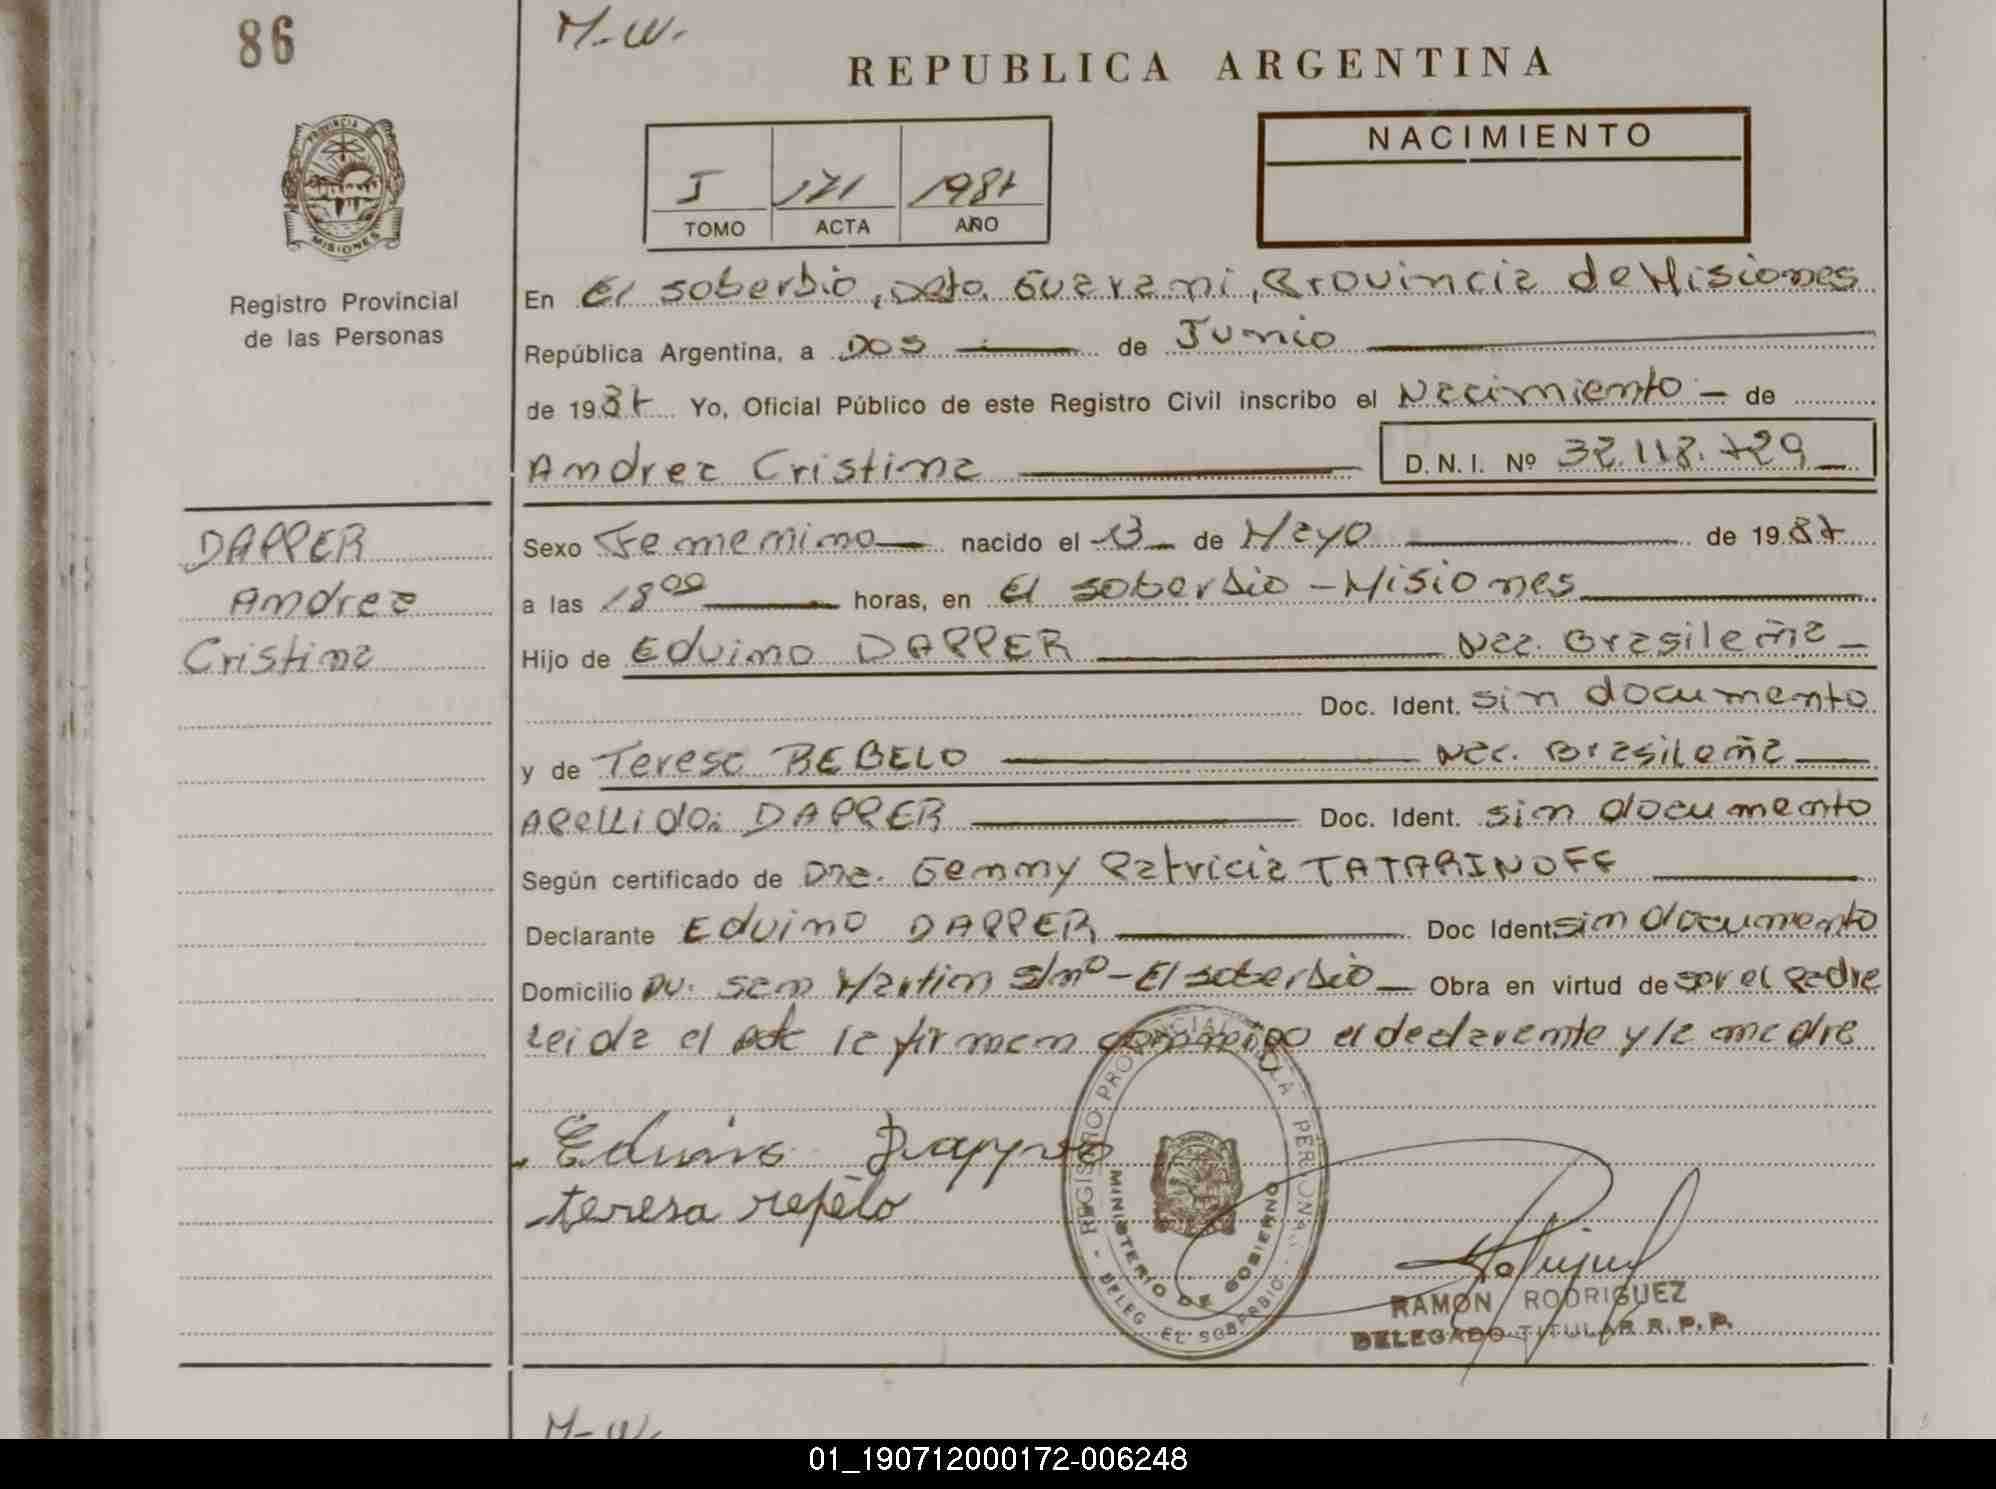 86
M-W.
REPUBLICA ARGENTINA
PROVINCIA DE
MISIONES
Registro Provincial
de las Personas
I 171 1987
TOMO ACTA AÑO
NACIMIENTO
En El soberbio, Dpto. Guarani, Provincia de Misiones
República Argentina, a Dos de Junio
de 1987 Yo, Oficial Público de este Registro Civil inscribo el Nacimiento - de
Andrea Cristina D.N.I. Nº 32.118.729
DAPPER
Andrea
Cristina
Sexo Femenino nacido el 13 de Mayo de 1987
a las 18 00 horas, en El soberbio - Misiones
Hijo de Eduino DAPPER Nac. Brasileña
Doc. Ident. sin documento
y de Teresa REBELO Nac. Brasileña
Apellido: DAPPER Doc. Ident. sin documento
Según certificado de Dra. Gemmy Patricia TATARINOFF
Declarante Eduino DAPPER Doc Ident sin documento
Domicilio Av. San Martin s/nº - El soberbio Obra en virtud de ser el padre
Leida el acta la firman conmigo el declarante y la madre
Eduino Dapper
teresa repélo
REGISTRO PROVINCIAL PERSONAS
MINISTERIO DE GOBIERNO
DELEG. EL SOBERBIO
RAMON RODRIGUEZ
DELEGADO TITULAR R.P.P.
M-W.
01_190712000172-006248